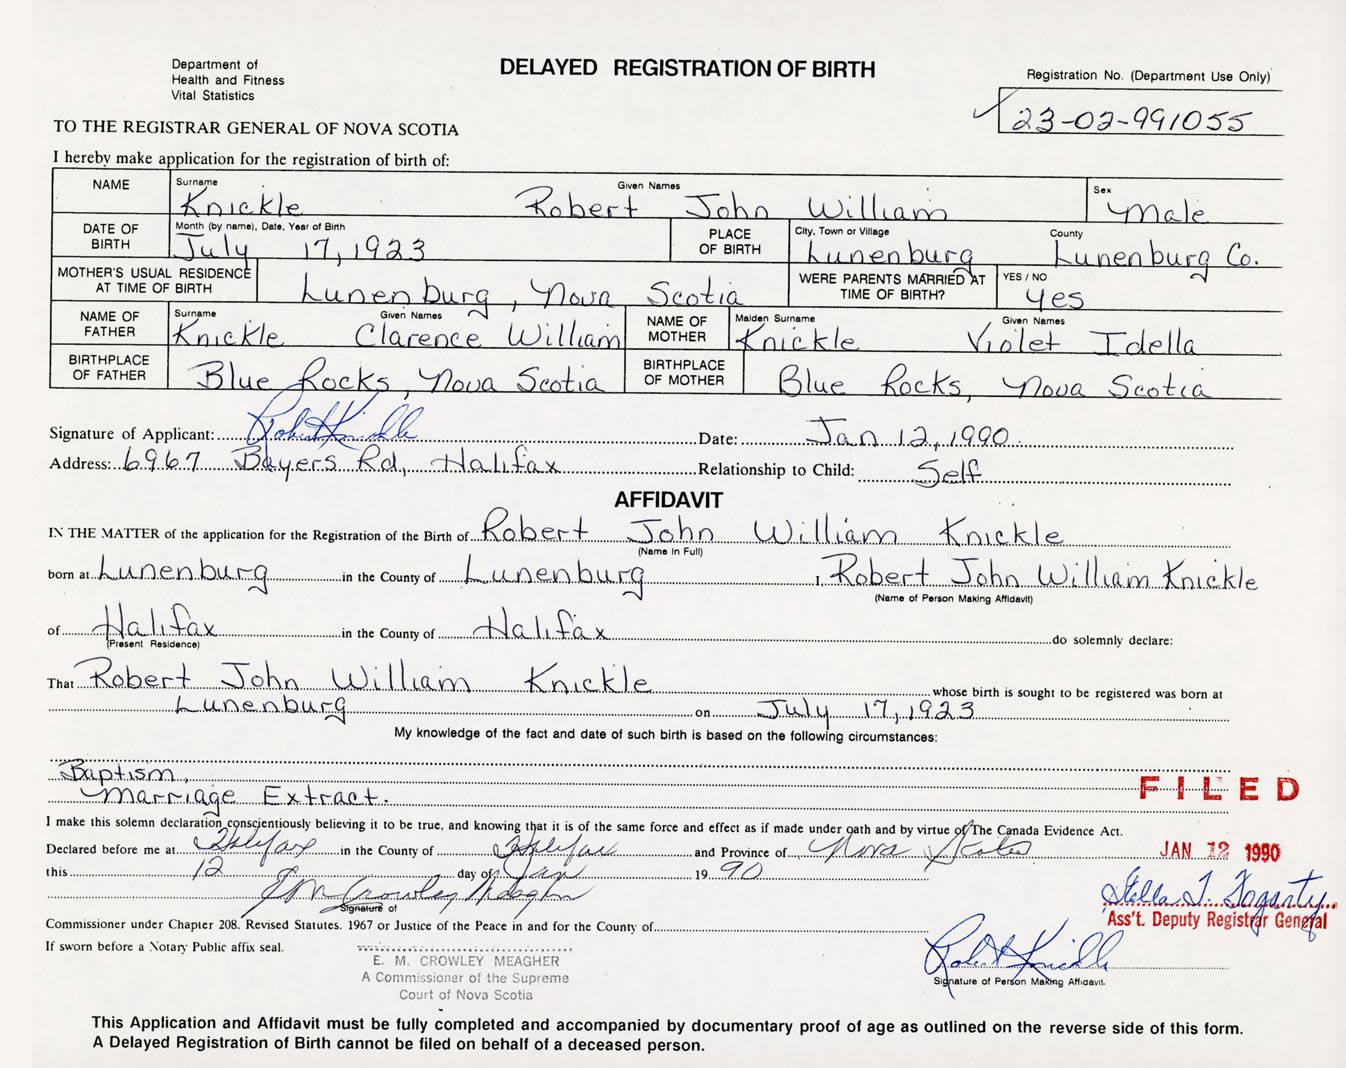 Department of
Health and Fitness
Vital Statistics
DELAYED REGISTRATION OF BIRTH
Registration No. (Department Use Only)
23-02-991055
TO THE REGISTRAR GENERAL OF NOVA SCOTIA
I hereby make application for the registration of birth of:
NAME Surname Knickle Given Names Robert John William Sex Male
DATE OF BIRTH Month (by name), Date, Year of Birth July 17, 1923 PLACE OF BIRTH City, Town or Village Lunenburg County Lunenburg Co.
MOTHER'S USUAL RESIDENCE AT TIME OF BIRTH Lunenburg, Nova Scotia WERE PARENTS MARRIED AT TIME OF BIRTH? YES / NO yes
NAME OF FATHER Surname Knickle Given Names Clarence William NAME OF MOTHER Maiden Surname Knickle Given Names Violet Idella
BIRTHPLACE OF FATHER Blue Rocks, Nova Scotia BIRTHPLACE OF MOTHER Blue Rocks, Nova Scotia
Signature of Applicant: Robert Knickle Date: Jan 12, 1990
Address: 6967 Bayers Rd, Halifax Relationship to Child: Self
AFFIDAVIT
IN THE MATTER of the application for the Registration of the Birth of Robert John William Knickle
(Name in Full)
born at Lunenburg in the County of Lunenburg I, Robert John William Knickle
(Name of Person Making Affidavit)
of Halifax in the County of Halifax do solemnly declare:
(Present Residence)
That Robert John William Knickle whose birth is sought to be registered was born at
Lunenburg on July 17, 1923
My knowledge of the fact and date of such birth is based on the following circumstances:
Baptism,
Marriage Extract.
FILED
I make this solemn declaration conscientiously believing it to be true, and knowing that it is of the same force and effect as if made under oath and by virtue of The Canada Evidence Act.
Declared before me at Halifax in the County of Halifax and Province of Nova Scotia
JAN 12 1990
this 12 day of Jan 19 90
E M Crowley Meagher
Signature of
Stella T. Fogarty
Ass't. Deputy Registrar General
Commissioner under Chapter 208, Revised Statutes, 1967 or Justice of the Peace in and for the County of
If sworn before a Notary Public affix seal.
E. M. CROWLEY MEAGHER
A Commissioner of the Supreme
Court of Nova Scotia
Robert Knickle
Signature of Person Making Affidavit.
This Application and Affidavit must be fully completed and accompanied by documentary proof of age as outlined on the reverse side of this form.
A Delayed Registration of Birth cannot be filed on behalf of a deceased person.